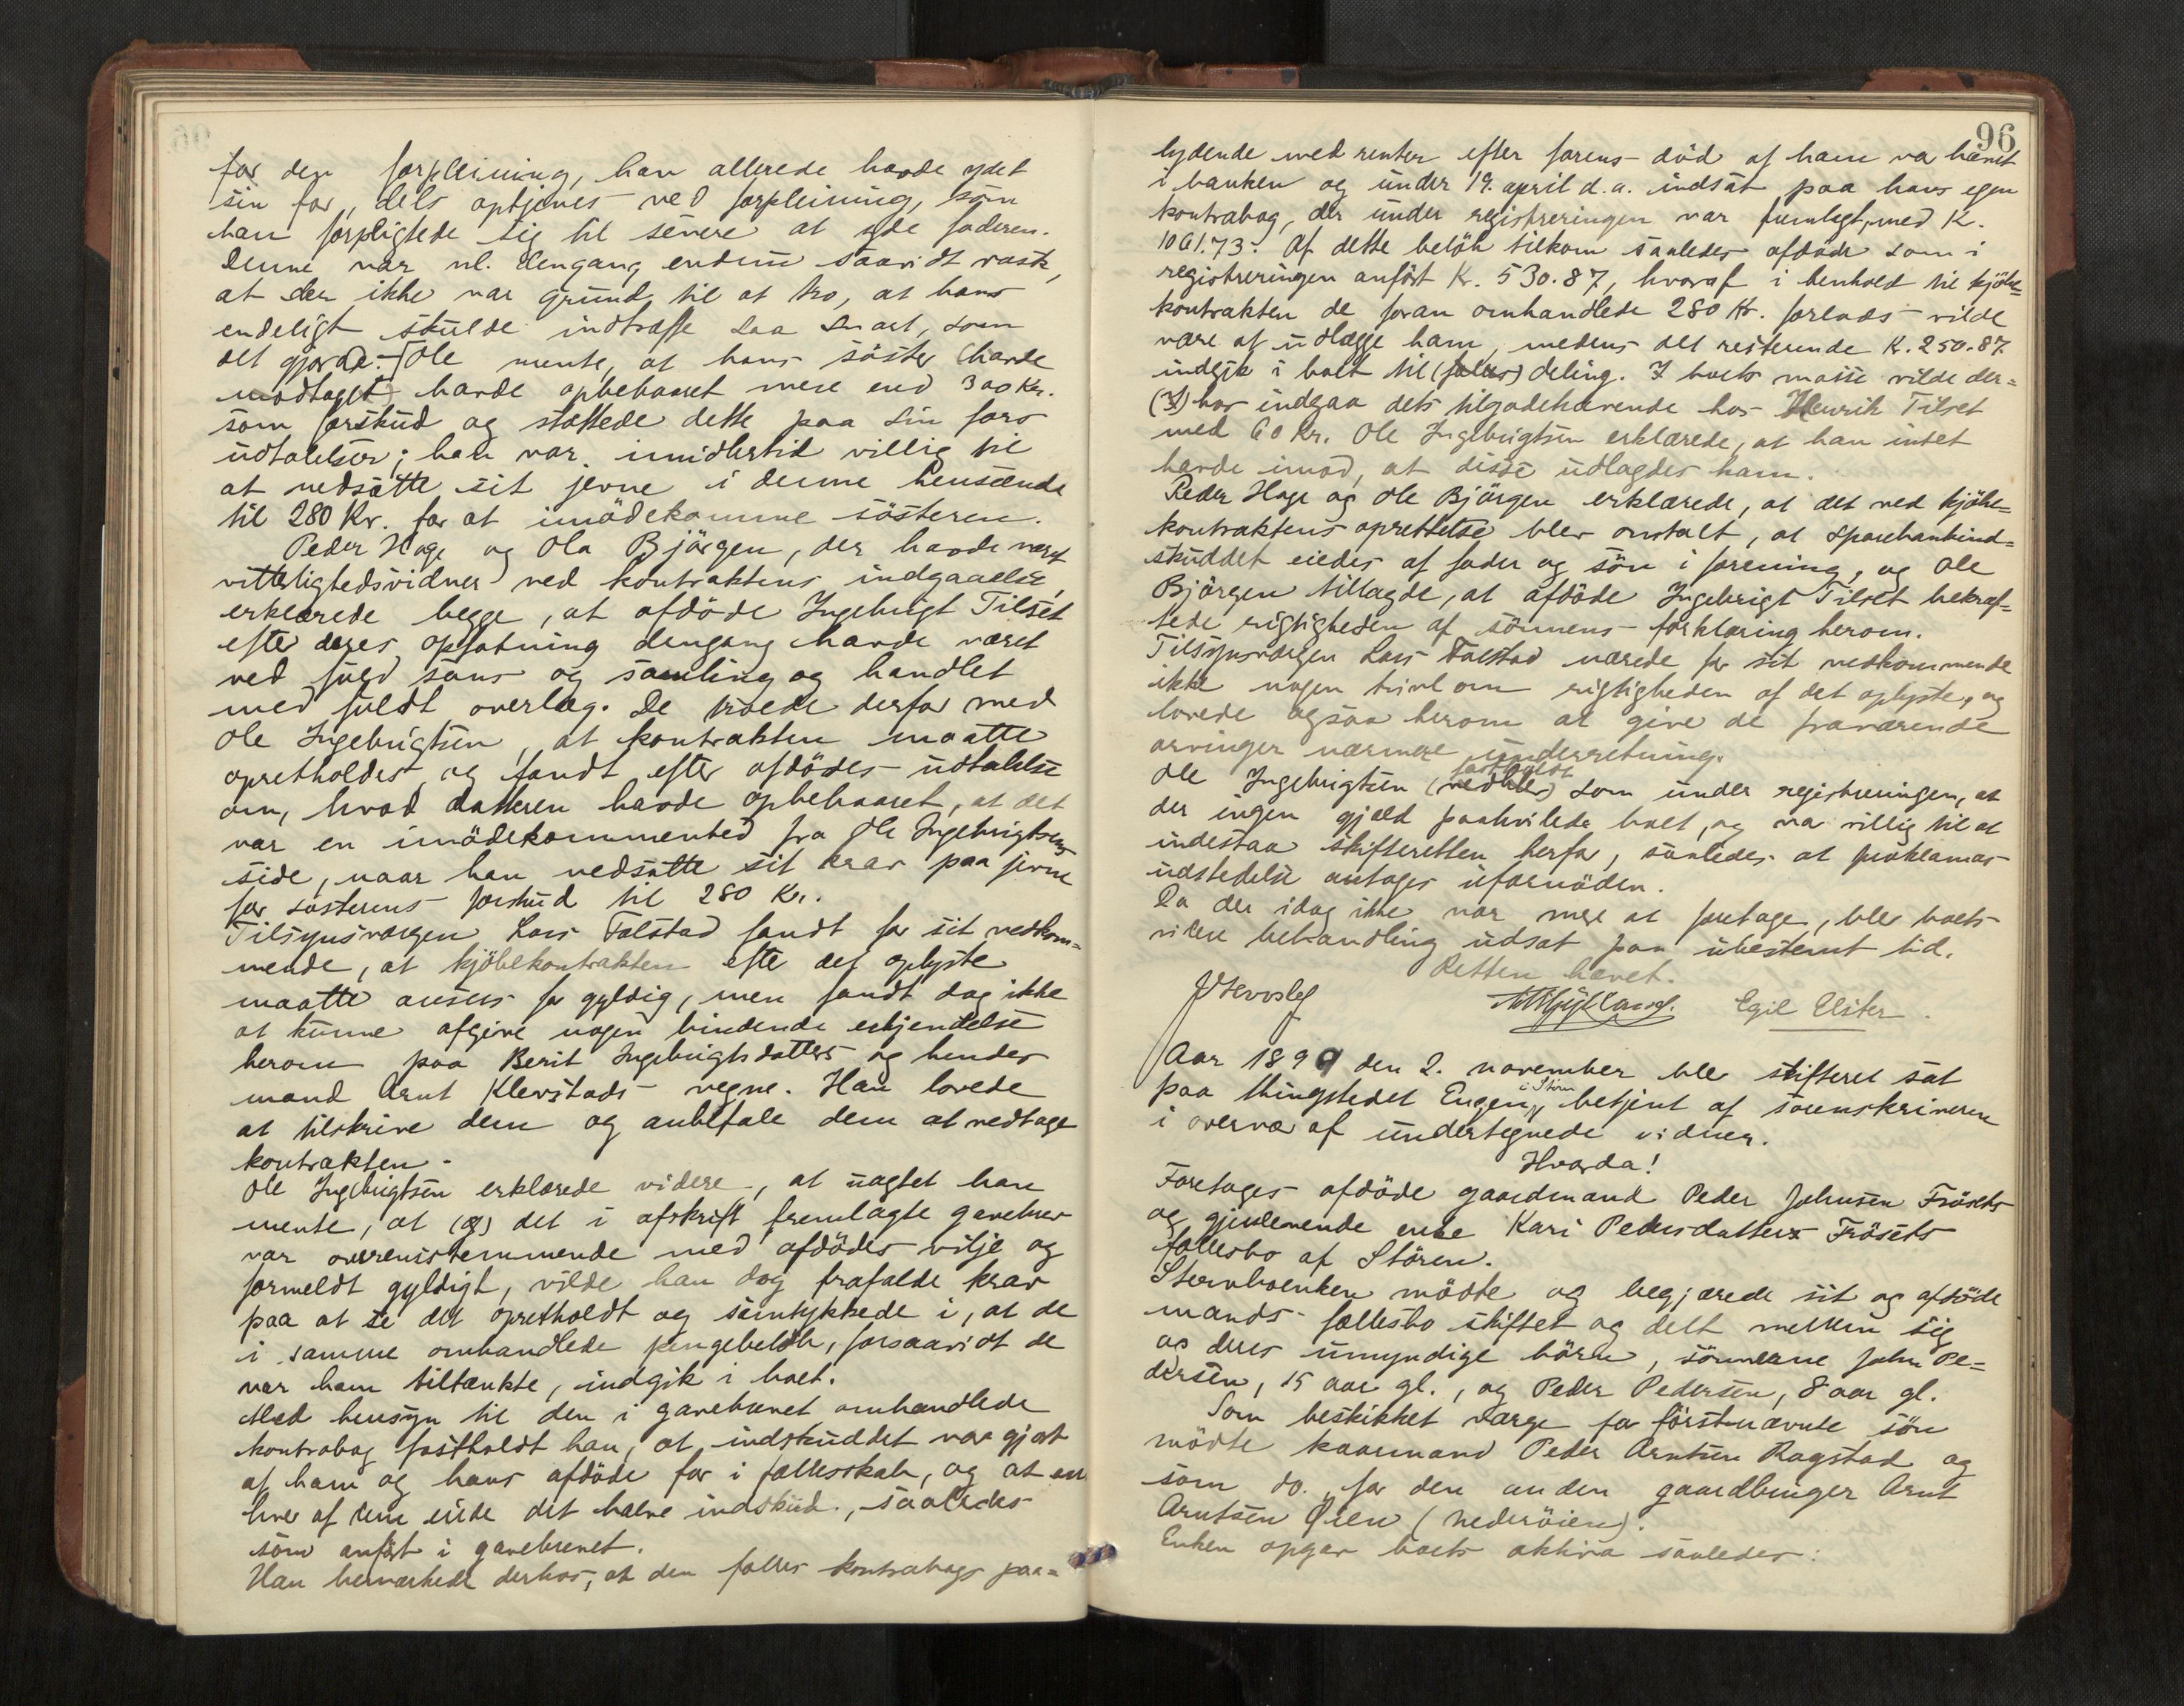 for den forpleining, han allerede havde ydet
sin far, dels optjenes ved forpleining, som
han forpligtede sig til senere at yde faderen.
Denne var nl. dengang endnu saavidt rask,
at der ikke var grund til at tro, at hans
endeligt skulde indtræffe saa snart, som
det gjorde. - Ole mente, at hans söster (havde
modtaget) havde opbebaaret mere end 300 Kr.
som forskud og støttede dette paa sin fars
udtalelser; han var imidlertid villig til
at nedsætte sit jevne i denne henseende
til 280 Kr. for at imödekomme sösteren.
Peder Hage og Ola Bjørgen, der havde været
vitterlighedsvidner ved kontraktens indgaaelse,
erklærede begge, at afdöde Ingebrigt Tilset
efter deres opfatning dengang havde været
ved fuld sans og samling og handlet
med fuldt overlæg. De troede derfor med
Ole Ingebrigtsen, at kontrakten maatte
opretholdes og fandt efter afdödes udtalelse
om, hvad datteren havde opbebaaret, at det
var en imödekommenhed fra Ole Ingebrigtsens
side, naar han nedsatte sit krav paa jevne
for sösterens forskud til 280 Kr.
Tilsynsværgen Lars Folstad fandt for sit vedkom=
mende, at kjöbekontrakten efter det oplyste
maatte ansees for gyldig, men fandt dog ikke
at kunne afgive nogen bindende erkjendelse
herom paa Berit Ingebrigtsdatters og hendes
mand Arnt Klevstads vegne. Han lovede
at tilskrive dem og anbefale dem at vedtage
kontrakten. -
Ole Ingebrigtsen erklærede videre, at uagtet han
mente, at (g) det i afskrift fremlagte gavebrev
var overensstemmende med afdödes vilje og
formeldt gyldigt, vilde han dog frafalde krav
paa at se det opretholdt og samtykkede i, at de
i samme omhandlede pengebelöb, forsaavidt de
var ham tiltænkte, indgik i boet.
Med hensyn til den i gavebrevet omhandlede
kontrabog fastholdt han, at indskuddet var gjort
af ham og hans afdöde far i fællesskab, og at en
hver af dem eiede det halve indskud, saaledes
som anfört i gavebrevet.
Han bemærkede derhos, at den fælles kontrabogs paa=
96
lydende med renter efter farens död af ham var hævet
i banken og under 19. april d.a. indsat paa hans egen
kontrabog, der under registreringen var fremlagt, med K.
1061.73. Af dette belöb tilkom saaledes afdöde som i
registreringen anfört Kr. 530.87, hvoraf i henhold til kjöbe=
kontrakten de foran omhandlede 280 Kr. forlods vilde
være at udlægge ham, medens det resterende K. 250.87
indgik i boet til (fælles) deling. I boets masse vilde der=
(I) hos indgaa dets tilgodehavende hos Henrik Tilset
med 60 Kr. Ole Ingebrigtsen erklærede, at han intet
havde imod, at disse udlagdes ham.
Peder Hage og Ole Bjørgen erklærede, at det ved kjöbe=
kontraktens oprettelse blev omtalt, at sparebankind=
skuddet eiedes af fader og sön i forening, og Ole
Bjørgen tillagde, at afdöde Ingebrigt Tilset bekræf=
tede rigtigheden af sönnens forklaring herom.
Tilsynsværgen Lars Folstad nærede for sit vedkommende
ikke nogen tvivl om rigtigheden af det oplyste, og
lovede ogsaa herom at give de fraværende
arvinger nærmere underretning.
fastholdt
Ole Ingebrigtsen (vedblev) som under registreringen, at
der ingen gjæld paahvilede boet, og var villig til at
indestaa skifteretten herfor, saaledes at proklamas
udstedelse antages ufornöden.
Da der idag ikke var mere at foretage, blev boets
videre behandling udsat paa ubestemt tid.
Retten hævet.
Egil Elster.
Aar 1899 den 2. november blev skifteret sat
i Stören
paa thingstedet Engen, betjent af sorenskriveren
i overvær af undertegnede vidner.
Hvorda!
Foretoges afdöde gaardmand Peder Johnsen Frösets
og gjenlevende enke Kari Pedersdatters Frösets
fællesbo af Stören.
Stervboenken mödte og begjærede sit og afdöde
mands fællesbo skiftet og delt mellem sig
og deres umyndige börn, sönnerne John Pe=
dersen, 15 aar gl., og Peder Pedersen, 8 aar gl.
Som beskikket værge for förstnævnte sön
mödte kaarmand Peder Arntsen Rogstad og
som do. for den anden gaardbruger Arnt
Arntsen Øien (Nederöien).
Enken opgav boets aktiva saaledes: